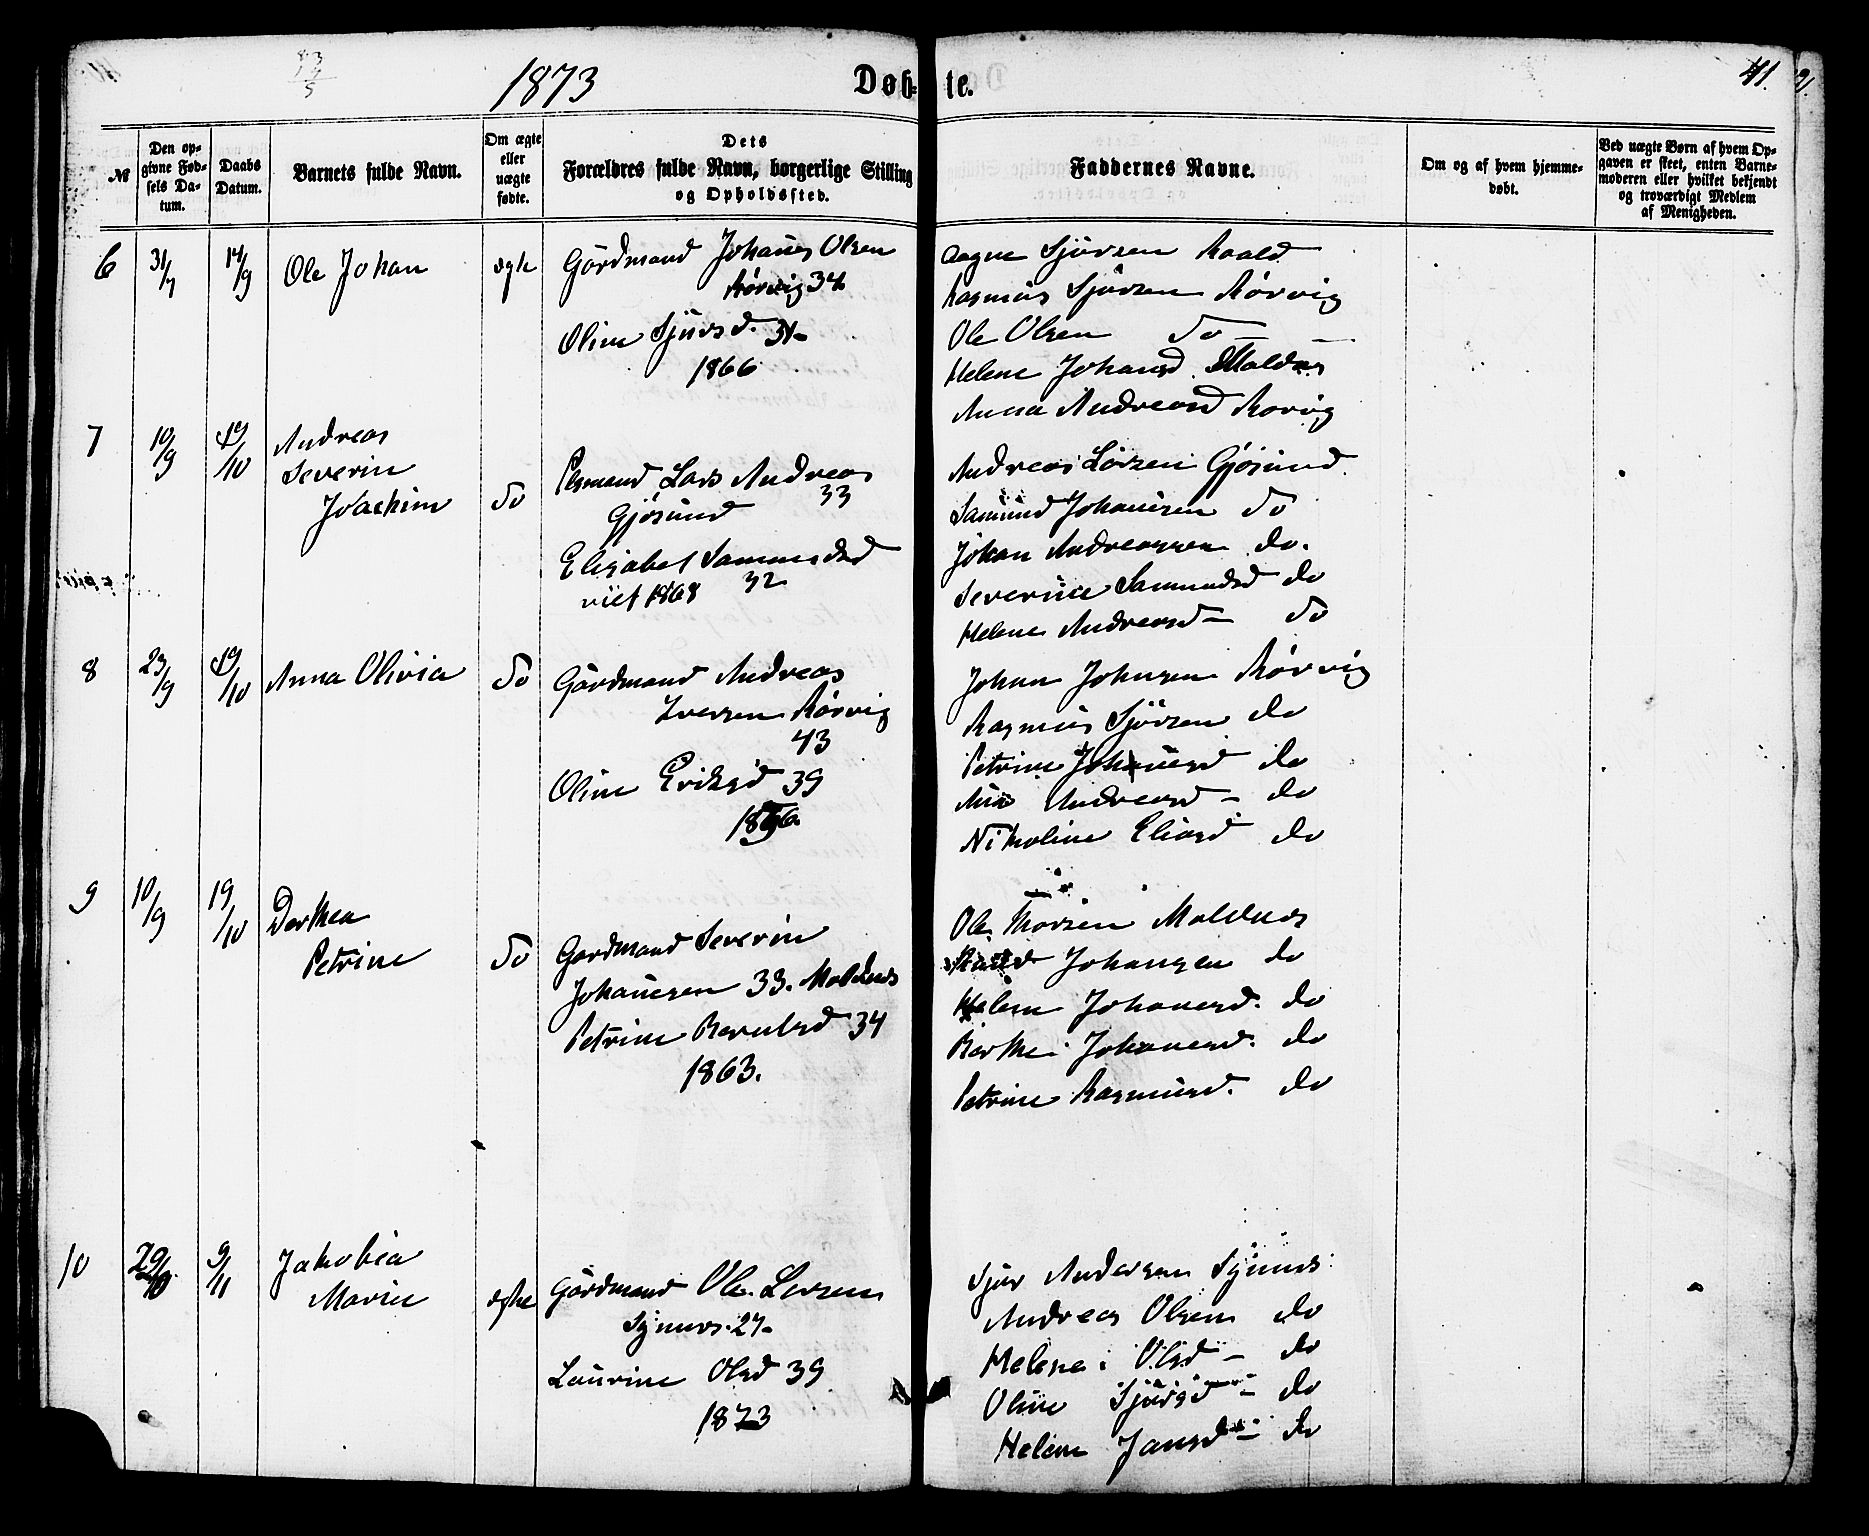 1873
Døb- te.
41.
№
Den opgivne Fødsels Datum.
Daabs Datum.
Barnets fulde Navn.
Om ægte eller uægte fødte.
Dets Forældres fulde Navn, borgerlige Stilling og Opholdssted.
Faddernes Navne.
Om og af hvem hjemmedøbt.
Ved uægte Børn af hvem Opgaven er skeet, enten Barnemoderen eller hvilket bekjendt og troværdigt Medlem af Menigheden.
6 31/7 14/9 Ole Johan
Gårdmand Johans Olsen
Rørvig 34
Oline Sjursd. 31
1866
Sjursen Roald
Rasmus Sjursen Rørvig
Ole Olsen do
Helene Johansd. Moldnes
Anna Andreasd Rørvig
7 10/9 19/10 Andreas
Severin
Joachim do
Lars Andreas
Gjøsund 33
Elisabet Samundsd
viet 1868 32
Andreas Larsen Gjøsund
Samund Johansen do
Johan Andreassen do.
Severine Samundsd do
Helene Andreasd do
8 23/9 19/10 Anna Olivia do
Gårdmand Andreas
Iversen Rørvig
43
Oline Eriksd 39
Johan Johnsen Rørvig
Rasmus Sjursen do
Petrine do
Andreasd do
Nikoline Eliasd do
9 10/9 19/10 Dorthea
Petrine do
Gårdmand Severin
Johansen 33. Moldnes
Petrine Berntsd 34
1863.
Ole Moldnes
Johansen do
Helene Johansd. do
Berthe Johansd. do
Petrine Rasmusd. do
10 29/10 9/11 Jakobia
Marie ægte
Gårdmand Ole Larsen
Synnes 27
Laurine Olsd 39
1873
Sjur Andersen Synnes
Andreas Olsen do
Helene Olsd do
Oline Sjursd do
Helene Jansd do